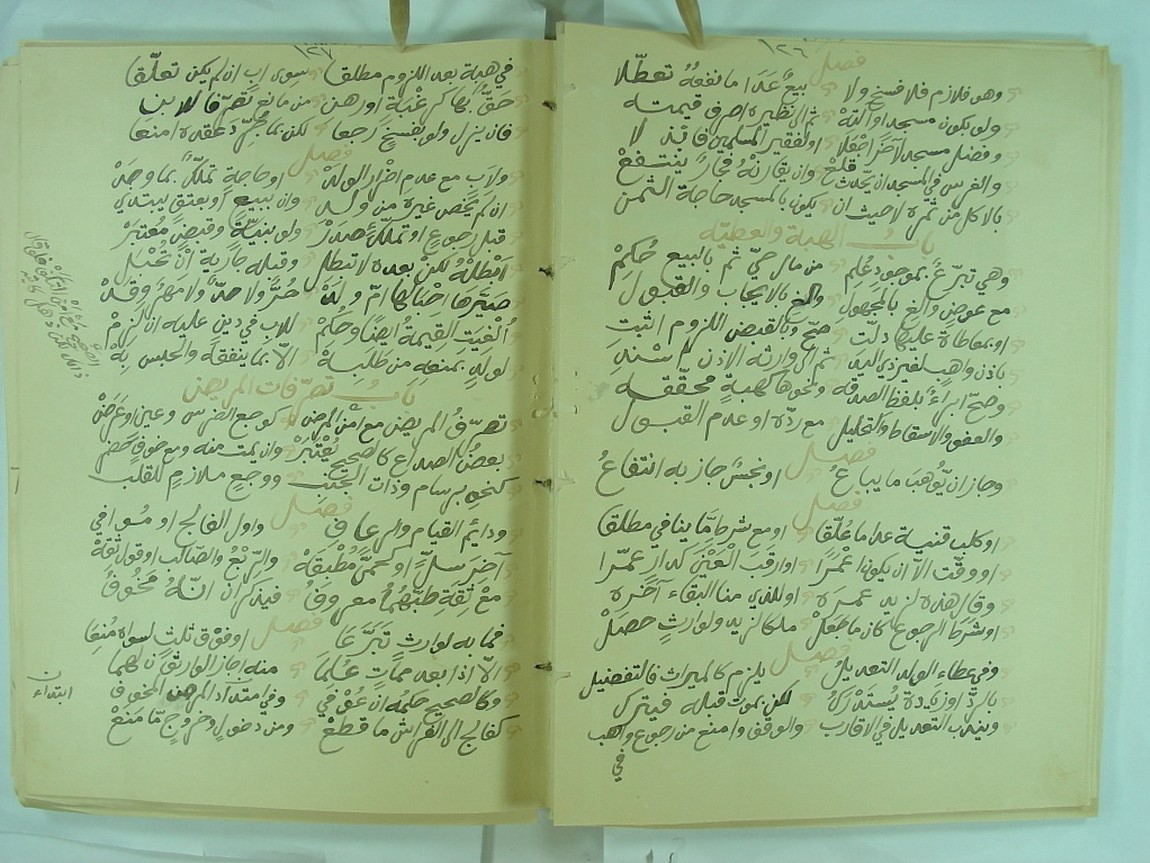 ١٢٦
فصل
وهو فلازم فلا فسخ ولا بيع عدا ما نفعه تعطلا
ولو يكون مسجدا وآلته ثم الى نظيره اصرف قيمته
وفضل مسجد لآخر اجعلا او لفقير المسلمين فابذلا
والغرس في المسجد ان يحدث قلع وان يقارنه فجاز ينتفع
بالاكل من ثمره لا حيث ان يكون بالمسجد حاجة الثمن
باب الهبة والعطية
وهي تبرع بموجود علم من مال حي ثم بالبيع حكم
مع عوض والغ بالمجهول والغ بالايجاب والقبول
او بمعاطاة عليها دلت صح وبالقبض اللزوم اثبت
باذن واهب لغير ذي اليد ثم الى وارثه الاذن اسند
وصح ابراء بلفظ الصدقه ونحوها كهبة محققه
والعفو والاسقاط والتحليل مع رده او عدم القبول
فصل
وجاز ان يوهب ما يباع او نجس جاز به انتفاع
فصل
او كلب قنية عدا ما علقا او مع شرط ما ينافي مطلقا
او وقت الا ان يكون اعمرا او ارقب العين كدار عمرا
وقال هذه لزيد عمره او للذي منا البقاء آخره
او شرط الرجوع كان ما جعل ملكا لزيد ولوارث حصل
فصل
وفي عطاء الولد التعديل يلزم كالميراث فالتفضيل
بالرد او زيادة يستدرك لكن بموت قبله فيترك
ويندب التعديل في الاقارب والوقف وامنع من رجوع واهب
في
١٢٧
في هبة بعد اللزوم مطلقا سوى اب ان لم يكن تعلقا
حق بها كرغبة او رهن من مانع تصرفا للابن
فان يزل ولو بفسخ رجعا لكن بما يجرد عقده امنعا
فصل
ولاب مع عدم اضرار الولد او حاجة تملك بما وجد
ان لم يخص غيره من ولد وان يبيع او بعتق يبتدي
قبل رجوع او تملك صدر ولو بنية وقبض معتبر
ابطله لكن بعده لا تبطل وقبله جارية ان تحبل
صيرها احبالها ام ولد حر ولا حد ولا مهر وقد
الفيت القيمة ايضا وحكم للاب في دين عليه ان لزم
لولد بمنعه من طلبه الا بما ينفقه والحبس به
باب تصرفات المريض
تصرف المريض مع امن المرض كوجع الضرس وعين او عرض
بعض الصداع كالصحيح يعتبر وان يمت منه ومع خوف خطر
كنحو برسام وذات الجنب ووجع ملازم للقلب
فصل
ودائم القيام والرعاف واول الفالج او موافي
آخر سل او بحمى مطبقه والربع والصالب او قول ثقه
مع ثقة طبهما معروف فيذكران انه مخوف
فصل
فما به لوارث تبرعا او فوق ثلث لسواه منعا
الا اذا بعد ممات علما منه اجاز الوارثون لهما
وكالصحيح حكمه ان عوفي وفي امتداد المرض المخوف
كفالج الى الفراش ما قطع ومن دخول وخروج ما منع
ابتداء